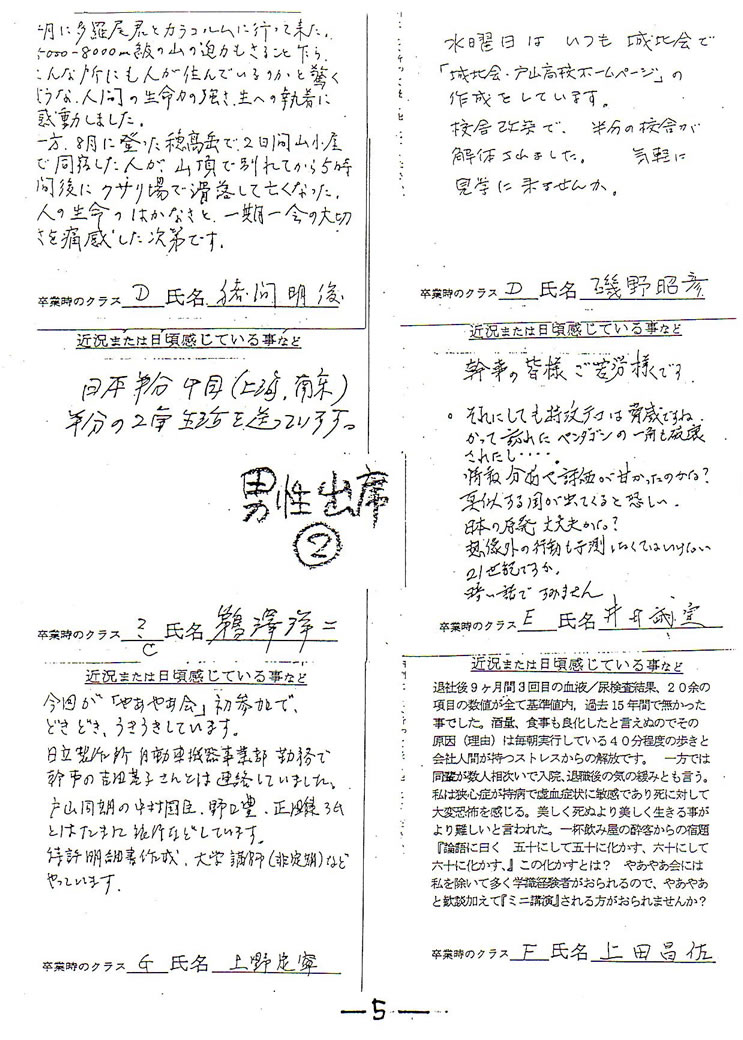 月に多羅尾君とカラコルムに行って来た。
5000-8000m級の山の迫力もさること乍ら、
こんな所にも人が住んでいるのかと驚く
ような、人間の生命力の強さ、生への執着に
感動しました。
一方、8月に登った穂高岳で、2日間山小屋
で同宿した人が、山頂で別れてから5時
間後にクサリ場で滑落して亡くなった。
人の生命のはかなさと、一期一会の大切
さを痛感した次第です。
卒業時のクラス D 氏名 明俊
近況または日頃感じている事など
日本半分 中国(上海、南京)
半分の2重生活を送っています。
男性出席
②
卒業時のクラス ?C 氏名 鵜澤洋二
近況または日頃感じている事など
今回が「やあやあ会」初参加で、
どきどき、うきうきしています。
日立製作所 自動車機器事業部 勤務で
幹事の吉田さんとは連絡していました。
戸山同期の中村国臣、野口豊、3仏
とはたまに旅行などしています。
特許明細書作成、大学講師(非定期)など
やっています。
卒業時のクラス G 氏名 上野定寧
水曜日は いつも 城北会で
「城北会・戸山高校ホームページ」の
作成をしています。
校舎改築で、半分の校舎が
解体されました。 気軽に
見学に来ませんか。
卒業時のクラス D 氏名 磯野昭彦
近況または日頃感じている事など
幹事の皆様 ご苦労様です
。それにしても特攻テロは脅威ですね。
かつて訪れたペンタゴンの一角も破壊
されたし・・・・。
情報分析や評価が甘かったのかな?
真似する国が出てくると恐しい。
日本の原発 大丈夫かな?
想像外の行動も予測しなくてはいけない
21世紀ですか。
暗い話ですみません
卒業時のクラス E 氏名 井
近況または日頃感じている事など
退社後9ヶ月間3回目の血液/尿検査結果、20余の
項目の数値が全て基準値内、過去15年間で無かった
事でした。酒量、食事も良化したと言えぬのでその
原因(理由)は毎朝実行している40分程度の歩きと
会社人間が持つストレスからの解放です。 一方では
同輩が数人相次いで入院、退職後の気の緩みとも言う。
私は狭心症が持病で虚血症状に敏感であり死に対して
大変恐怖を感じる。美しく死ぬより美しく生きる事が
より難しいと言われた。一杯飲み屋の酔客からの宿題
『論語に曰く 五十にして五十に化かす、六十にして
六十に化かす、』この化かすとは? やあやあ会には
私を除いて多く学識経験者がおられるので、やあやあ
と歓談加えて『ミニ講演』される方がおられませんか?
卒業時のクラス F 氏名 上田昌佐
—5—